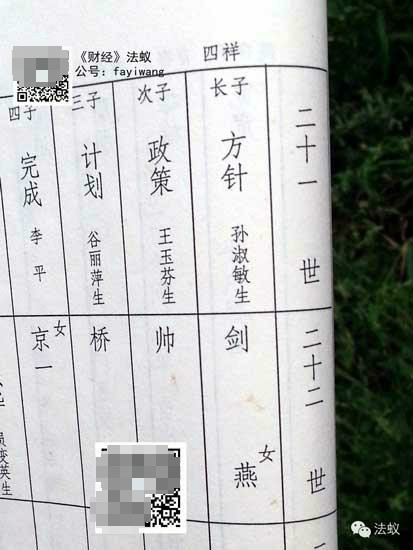 《财经》法蚁
公号: fayiwang
四祥
二十一世
长子
方针
孙淑敏生
次子
政策
王玉芬生
三子
计划
谷丽萍生
四子
完成
李平
二十二世
剑
女
燕
帅
桥
女
京一
英生
法蚁